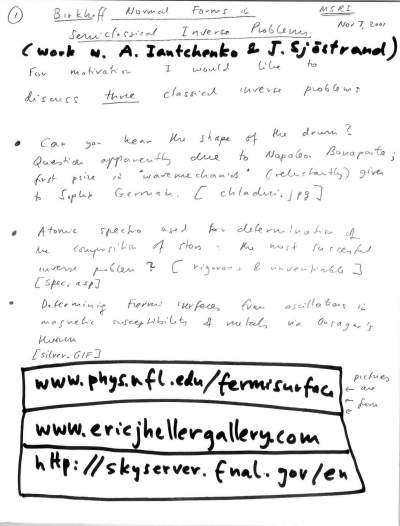 ① Birkhoff Normal Forms in MSRI
Semiclassical Inverse Problems Nov 7, 2001
(work w. A. Iantchenko & J. Sjöstrand)
For motivation I would like to
discuss three classical inverse problems
• Can you hear the shape of the drum?
Question apparently due to Napoleon Bonaparte;
first prize in "wave mechanics" (reluctantly) given
to Sophie Germain. [chladni.jpg]
• Atomic spectra used for determination of
the composition of stars: the most successful
inverse problem? [rigorous & unverifiable]
[spec.asp]
• Determining Fermi surfaces from oscillations in
magnetic susceptibility of metals via Onsager's
theorem
[silver.GIF]
www.phys.ufl.edu/fermisurface pictures
← are
www.ericjhellergallery.com ← from
←
http://skyserver.fnal.gov/en